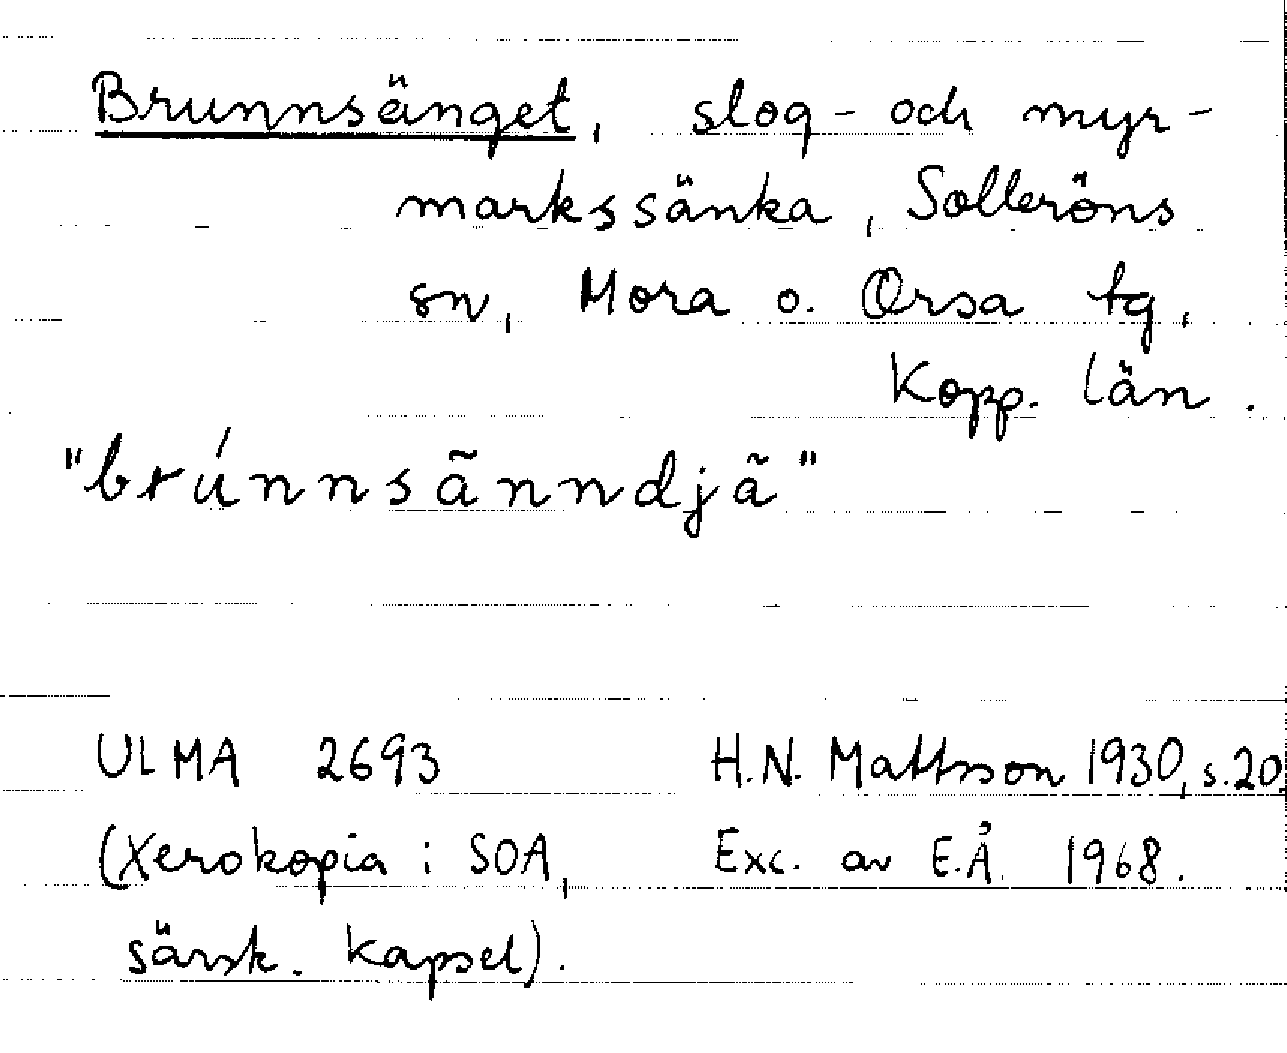 Brunnsänget, slog- och myr-
markssänka, Solleröns
sn, Mora o. Orsa tg,
Kopp. län.
"brúnnsãnndjã"
ULMA 2693 H.N. Mattsson 1930, s. 20.
(Xerokopia i SOA, Exc. av E.Å. 1968.
särsk. kapsel).